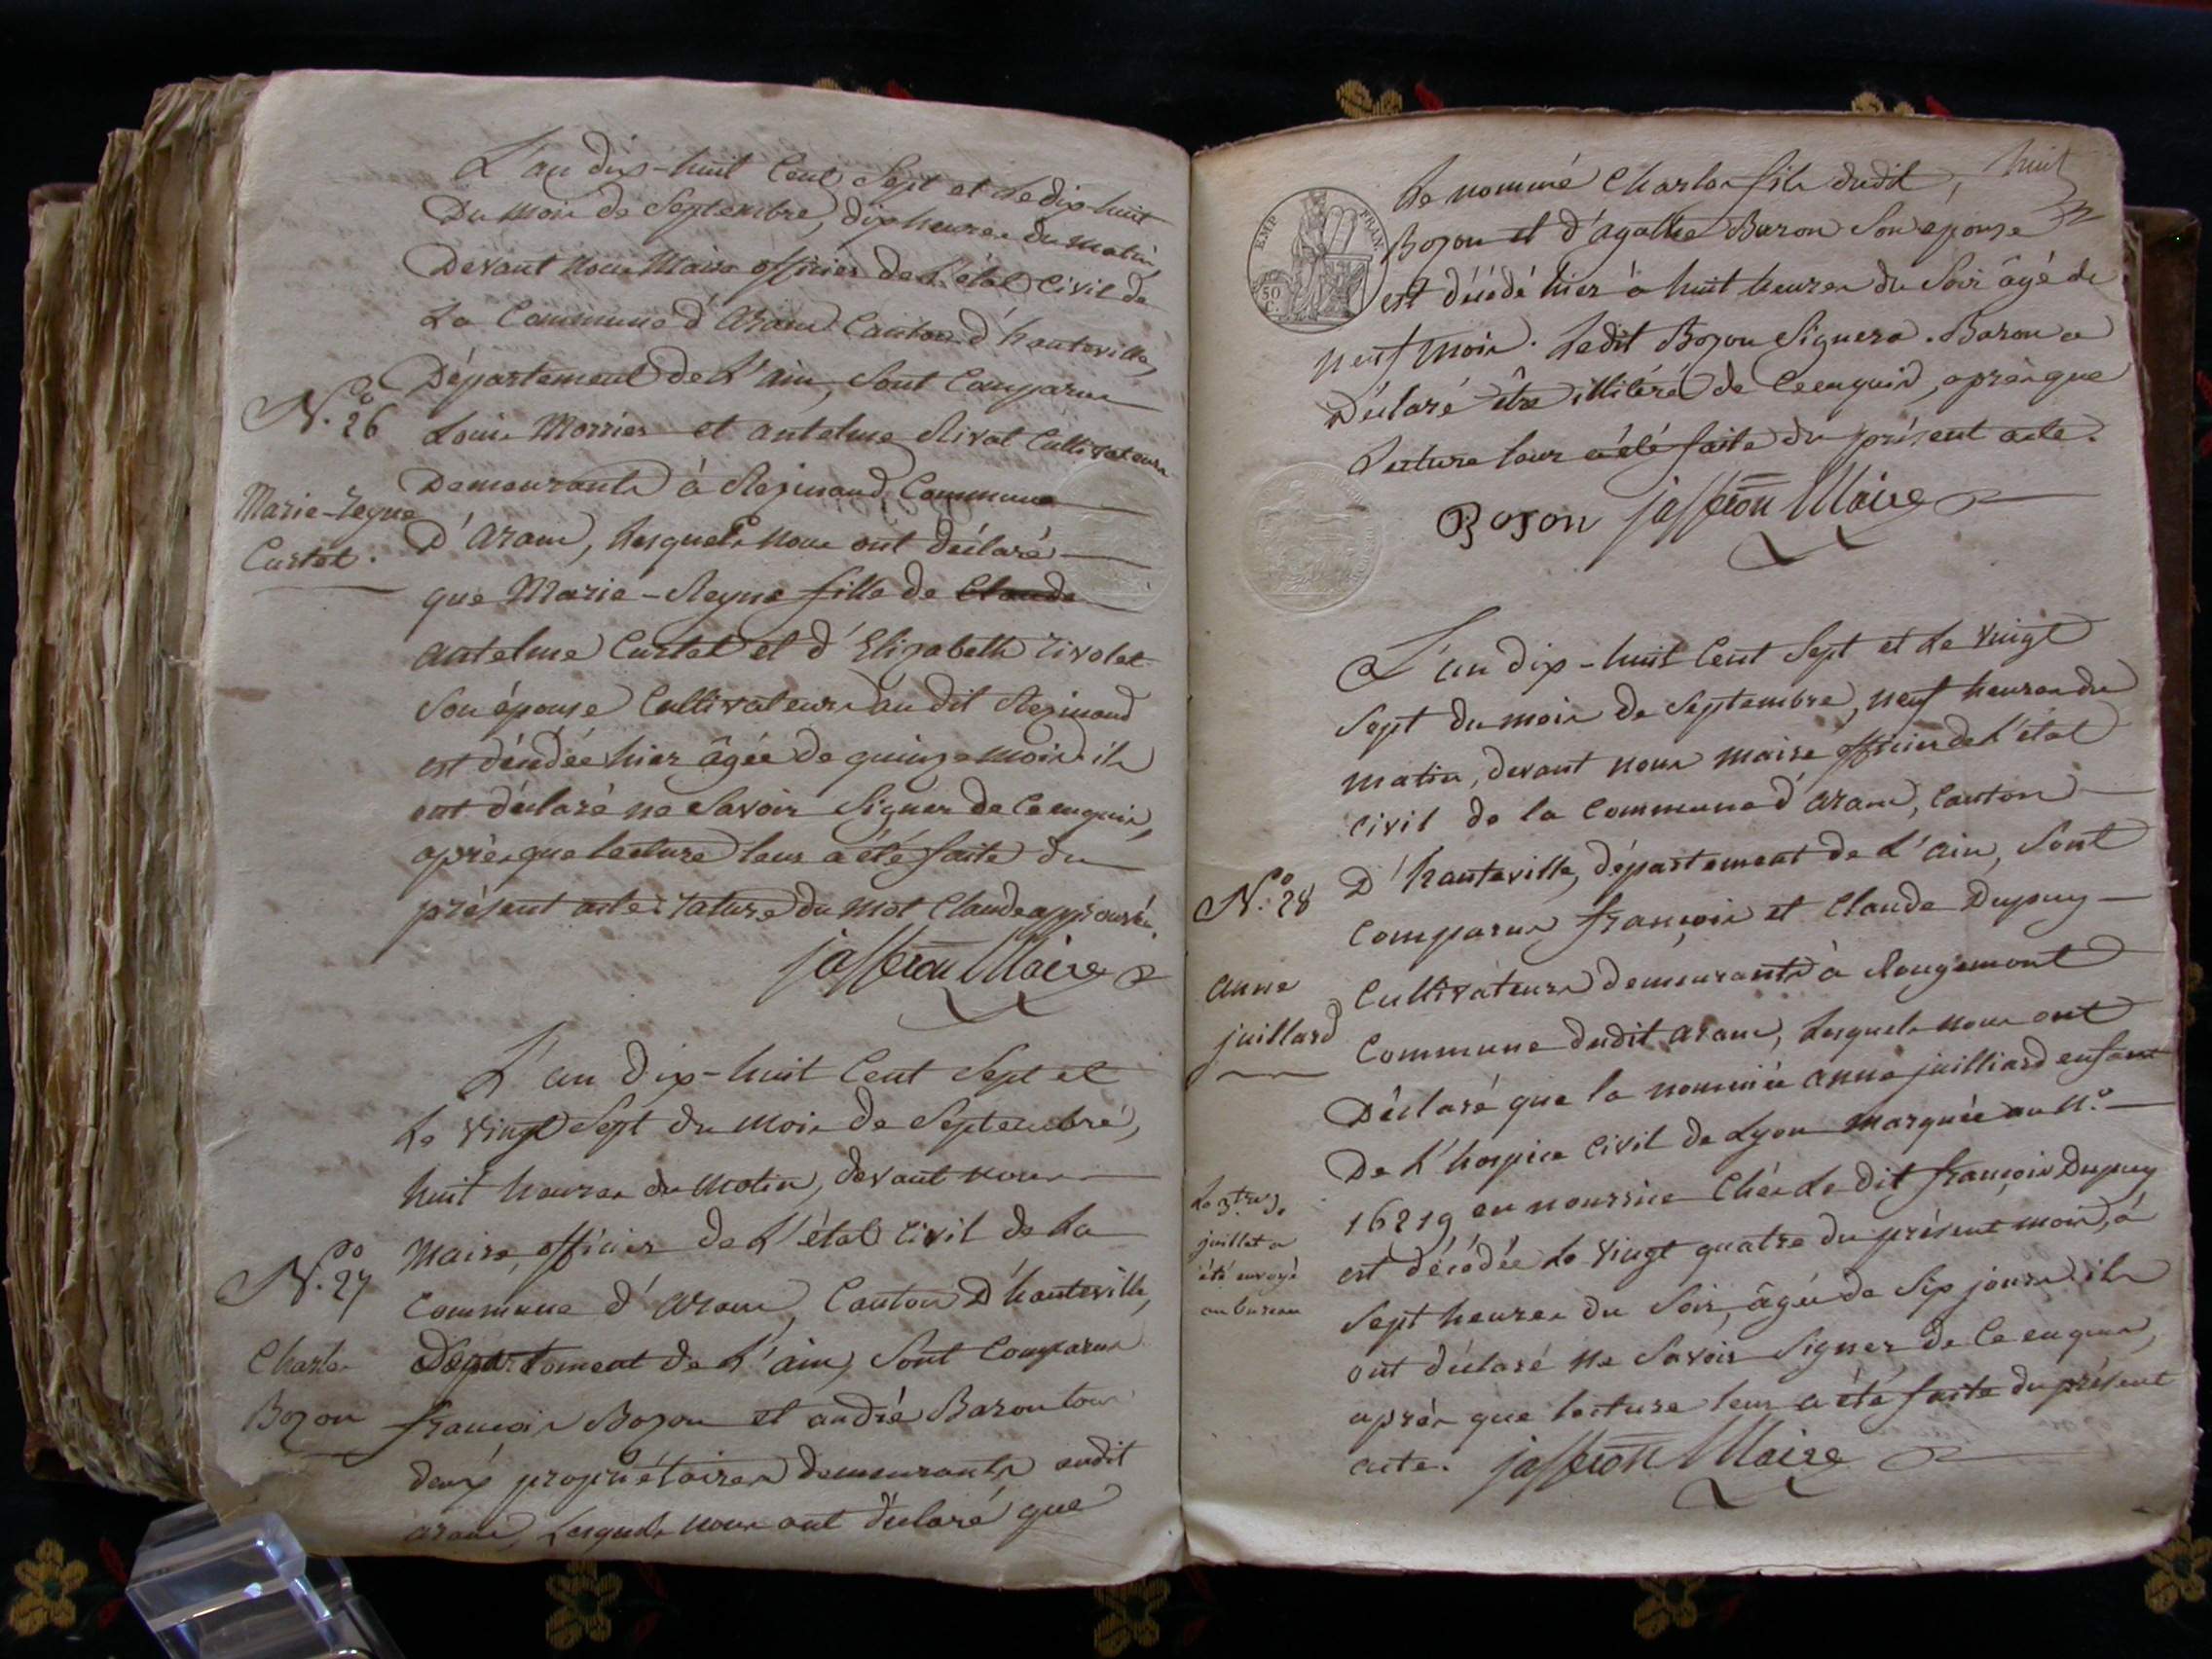 L'an dix-huit Cent Sept et le dix huit
Du mois de Septembre, dix heures du matin,
Devant nous Maire officier de L'état Civil de
La Commune d'aranc Canton d'hauteville,
Département de L'ain, Sont Comparus
N.o 26
Louis Morrier et antelme Rival Cultivateurs
Demeurants à Rezinand Commune
Marie-reyne
Curtet.
D'aranc, Lesquels nous ont déclaré
que Marie-Reyne fille de Claude
antelme Curtet et d'Elizabeth rivolet
Son épouse Cultivateurs au dit Rezinand
est décédée hier âgée de quinze mois ils
ont déclaré ne Savoir Signer de Ce enquis,
après que lecture leur a été faite du
présent acte: rature du mot Claude approuvée.
jaffron Maire
L'an Dix-huit Cent Sept et
Le vingt Sept du mois de Septembre,
huit heures du matin, devant nous
Maire, officier de L'état Civil de La
N.o 27
Commune d'aranc, Canton D'hauteville,
Charles
Bozon
Département de L'ain, Sont Comparus
françois Bozon et andré Baron tous
deux propriétaires demeurants audit
aranc, Lesquels nous ont déclaré que
huit
EMP FRAN.
50 C.
Le nommé Charles fils dudit
Bozon et d'agathe Baron Son épouse
est décédé hier à huit heures du Soir âgé de
neuf mois. Ledit Bozon Signera. Baron a
Déclaré être illitéré de Ce enquis, après que
Lecture leur a été faite du présent acte.
Bozon jaffron Maire
L'an dix-huit Cent Sept et Le vingt
Sept du mois de Septembre, neuf heures du
matin, devant nous maire officier de L'état
Civil de la Commune d'aranc, Canton
N.o 28
D'hauteville, département de L'ain, Sont
Comparus françois et Claude Dupuy
anne
juillard
Cultivateurs demeurants à Rougemont
Commune dudit aranc, Lesquels nous ont
Déclaré que la nommée anne juilliard enfant
De L'hospice Civil de Lyon marquée au N.o
16219, en nourrice Chés Le dit françois Dupuy
juillet a
été envoyé
au bureau
est décédée Le vingt quatre du présent mois, à
Sept heures du Soir, âgée de Six jours ils
ont déclaré ne Savoir Signer de Ce enquis,
après que lecture leur a été faite du présent
acte. jaffron Maire